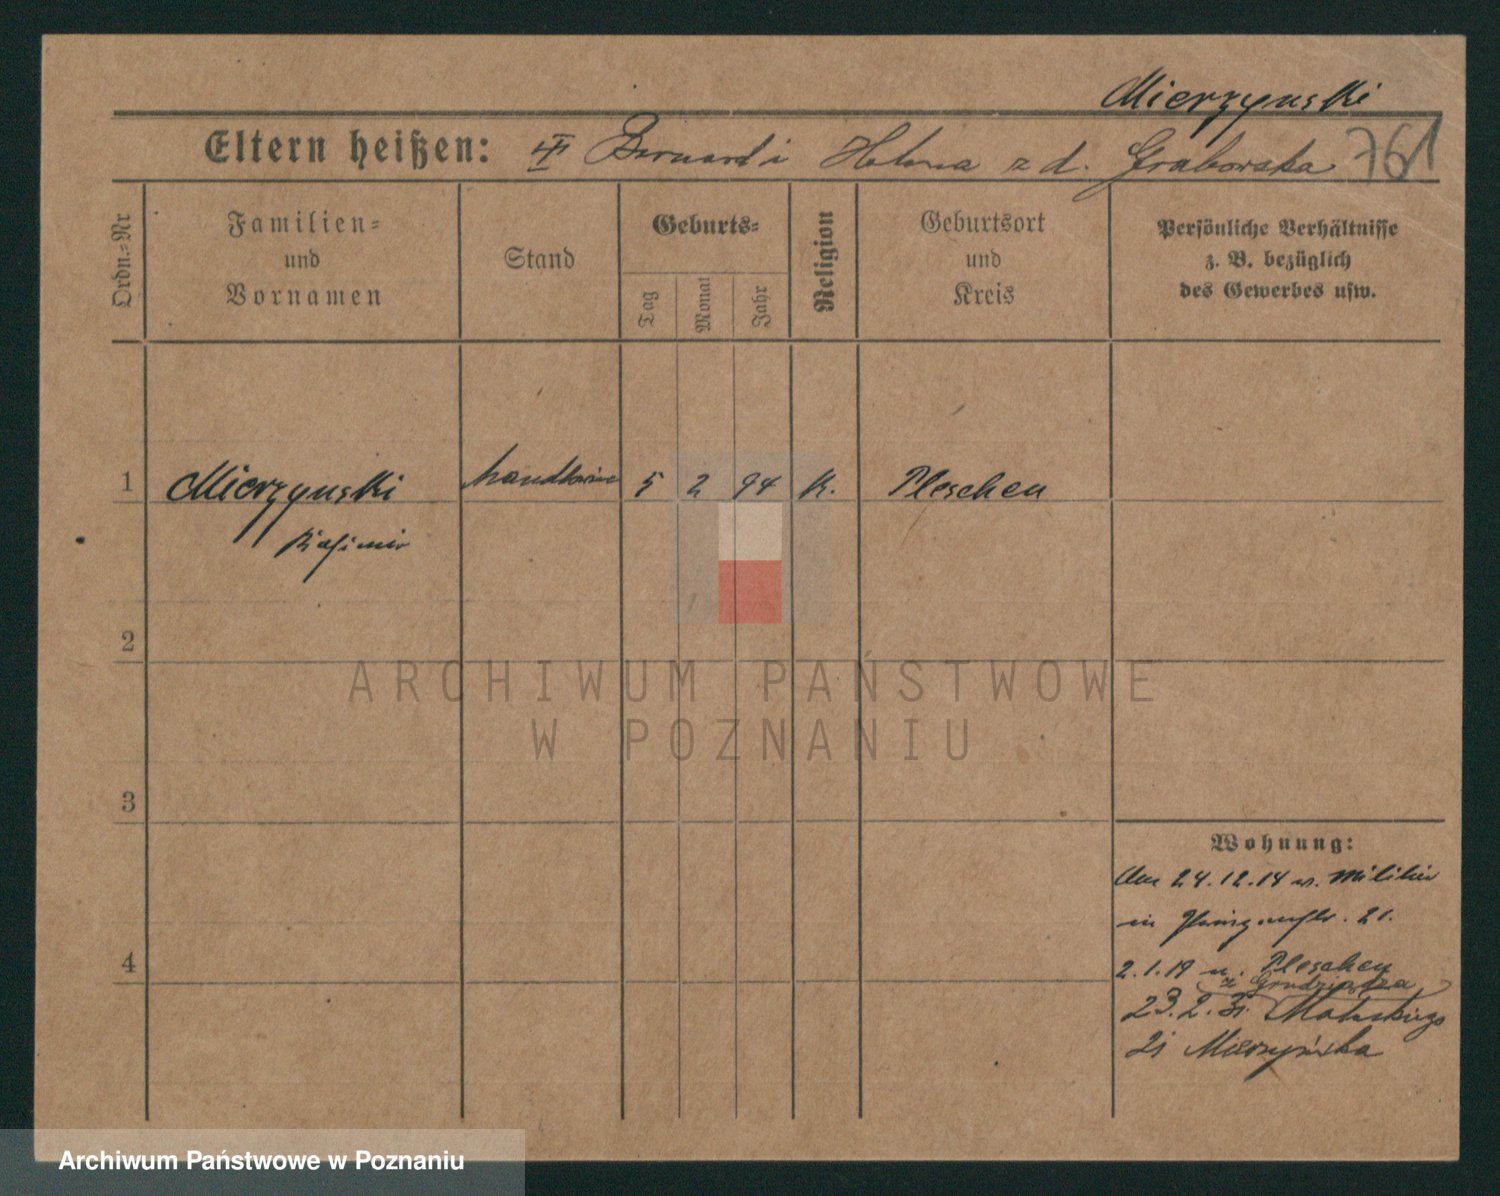 Mierzynski
Eltern heißen: Bernard i Helena z d. Graborska 761
Ordn.-Nr
Familien-
und
Vornamen
Stand
Geburts-
Tag
Monat
Jahr
Religion
Geburtsort
und
Kreis
Persönliche Verhältnisse
z. B. bezüglich
des Gewerbes usw.
1 Mierzynski 5 2 94 K. Pleschen
Kasimir
2
3
4
Wohnung:
Am 24.12.14 v. Militär
in 21.
2.1.19 n. Pleschen
z Grudziądza
23.2.31. Matuskiego
21 Mierzyńska
ARCHIWUM PAŃSTWOWE
W POZNANIU
Archiwum Państwowe w Poznaniu